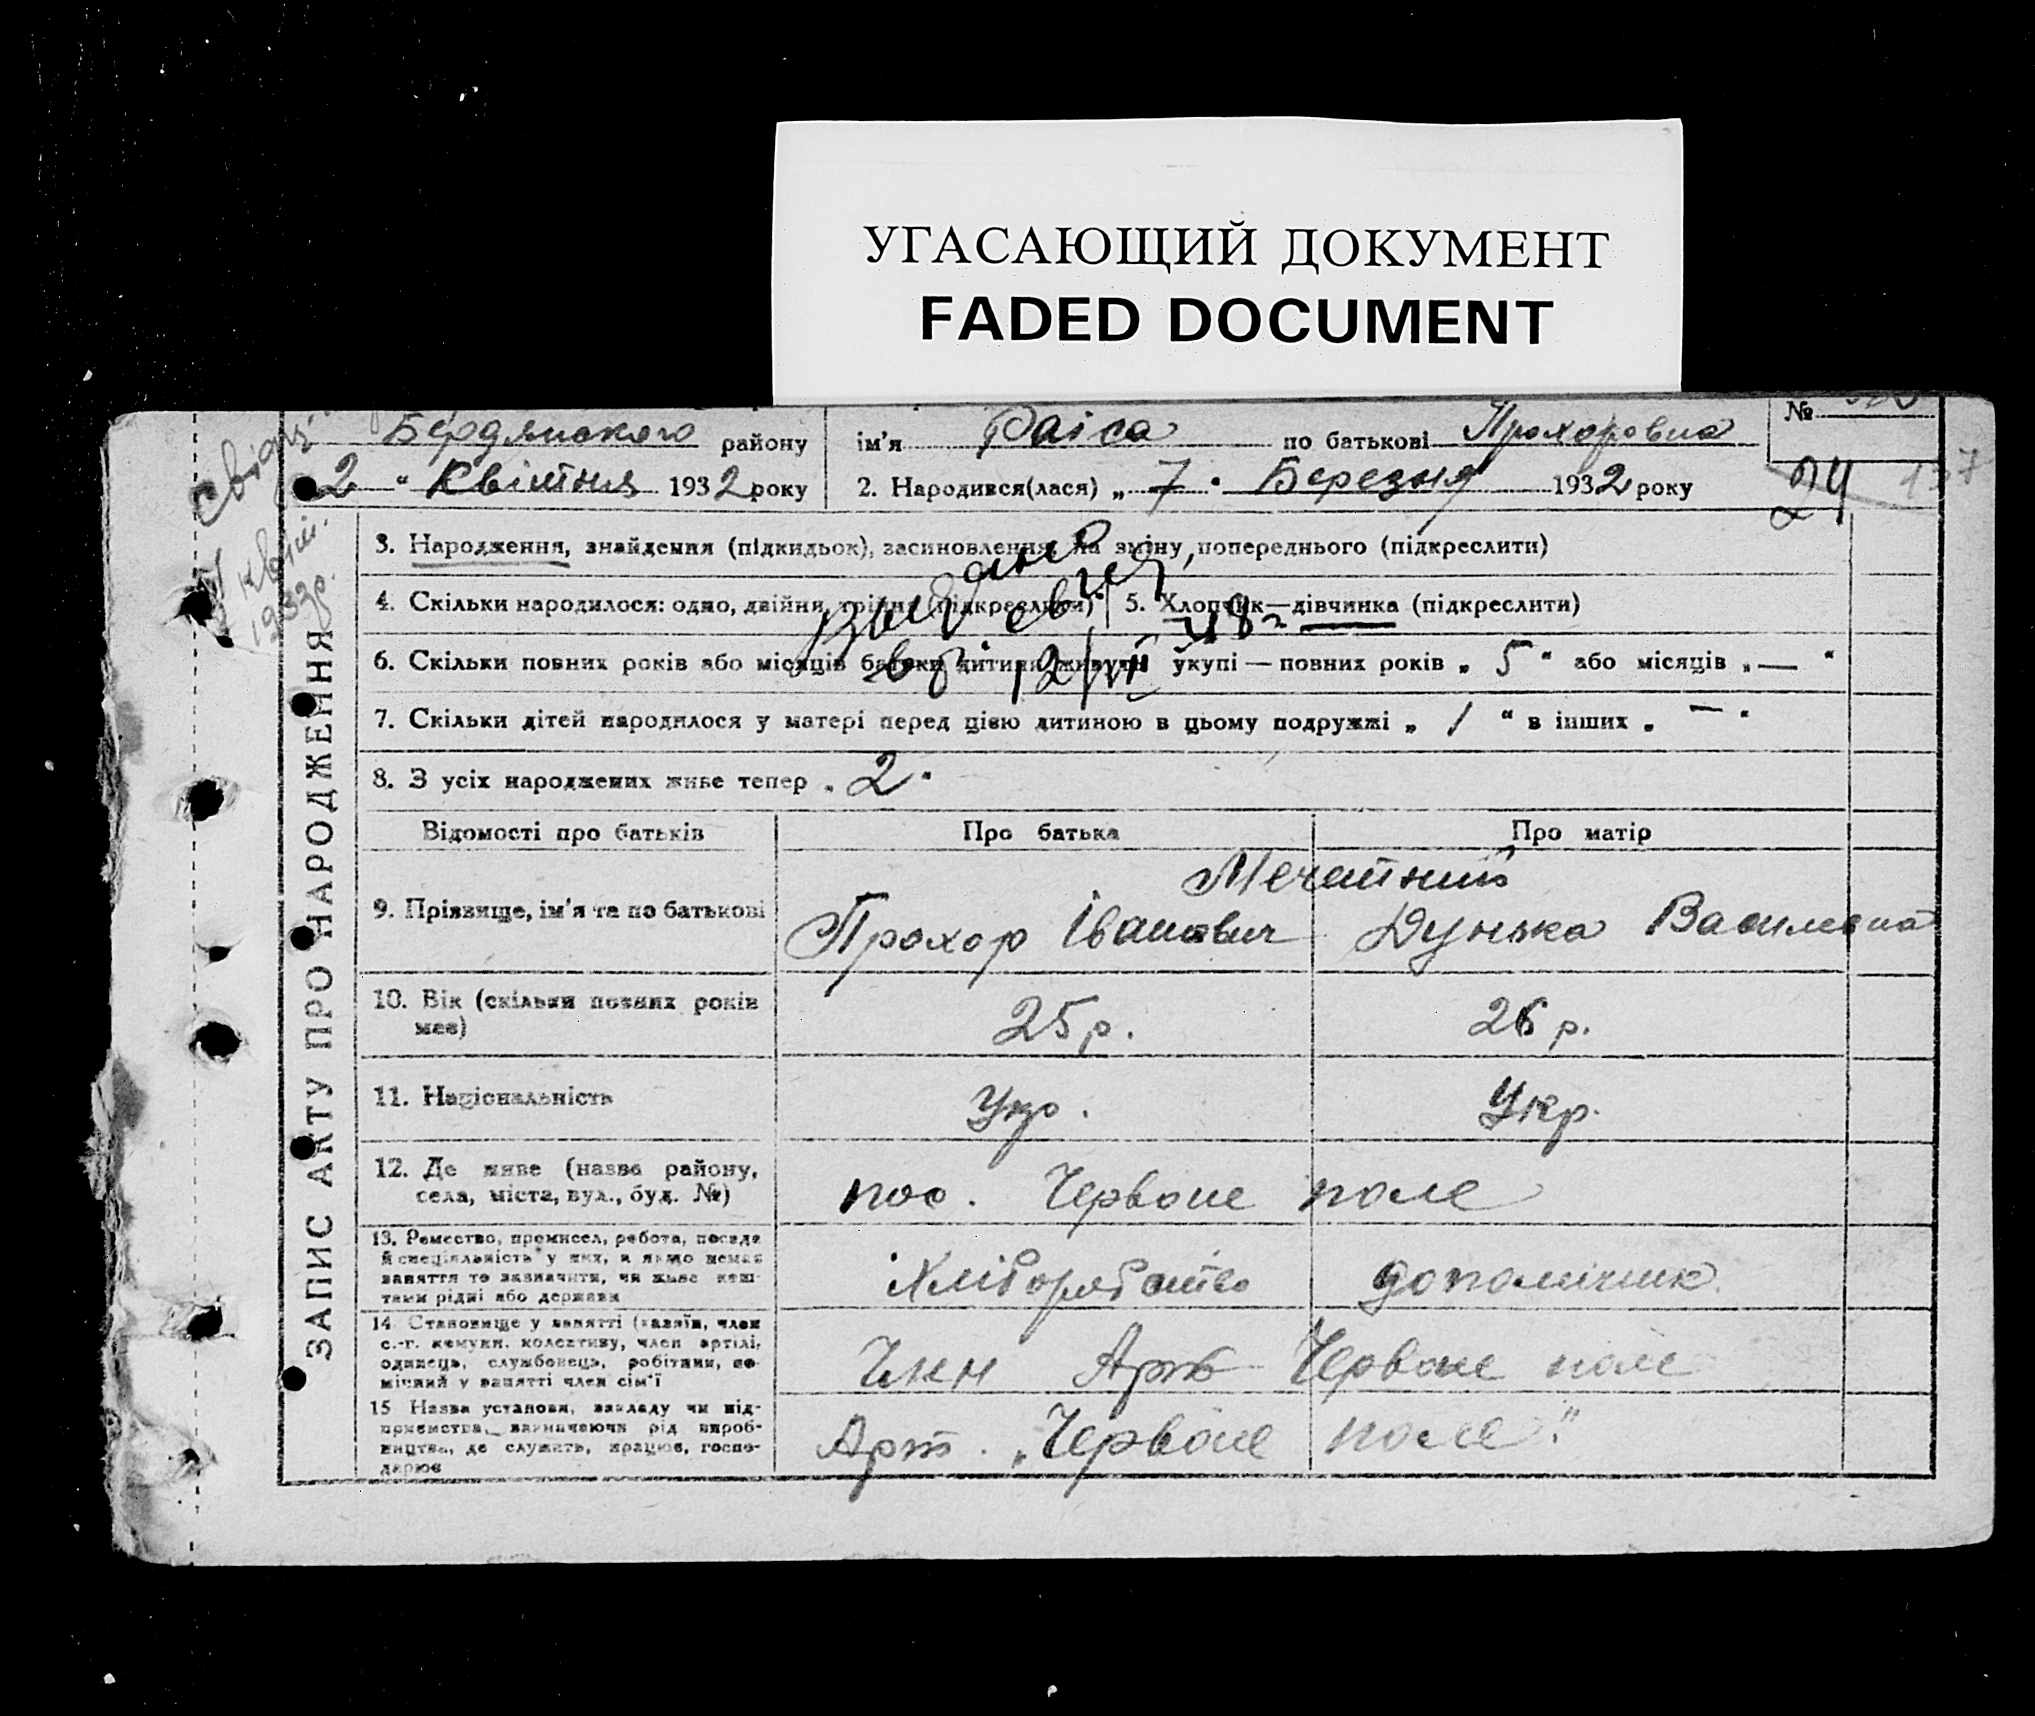 УГАСАЮЩИЙ ДОКУМЕНТ
FADED DOCUMENT
Бердянського району
ім'я Раіса по батькові Прохоровна
№
2 " Квітня 1932 року
2. Народився(лася) „ 7 " Березня 1932 року
24 137
квіт.
193 р.
ЗАПИС АКТУ ПРО НАРОДЖЕННЯ
3. Народження, знайдення (підкидьок), засиновлення, на зміну попереднього (підкреслити)
4. Скільки народилося: одно, двійня, трійня (підкреслити)
5. Хлопчик—дівчинка (підкреслити)
6. Скільки повних років або місяців батьки дитини живуть укупі — повних років „ 5 " або місяців „ — "
7. Скільки дітей народилося у матері перед цією дитиною в цьому подружжі „ 1 " в інших „ — "
8. З усіх народжених живе тепер „ 2 "
Відомості про батьків
Про батька
Про матір
9. Прізвище, ім'я та по батькові
Мечетний
Прохор Іванович
Дунька Василевна
10. Вік (скільки повних років має)
25 р.
26 р.
11. Національність
Укр.
Укр.
12. Де живе (назва району,
села, міста, вул., буд. №)
пос. Червоне поле
13. Ремество, промисел, робота, посада
й спеціяльність у них, а якщо немає
заняття то зазначити, чи живе кош-
тами рідні або держави
Хліборобство
допомічник
14 Становище у занятті (хазяїн, член
с.-г. комуни, колективу, член артілі,
одинець, службовець, робітник, по-
мічний у занятті член сім'ї
Член Арт Червоне поле
15 Назва установи, закладу чи під-
приємства, зазначаючи рід вироб-
ництва, де служить, працює, госпо-
дарює
Арт. „Червоне поле"